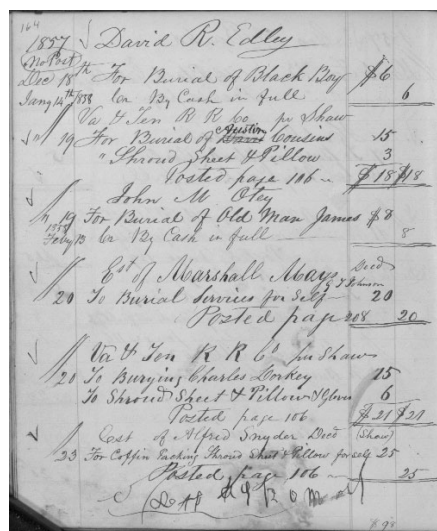 164
1857 David R. Edley
(No Post)
Dec 18th For Burial of Black Boy $6
Jany 14th 1858 Cr By Cash in full 6
Va & Ten R R Co pr Shaw
" 19 For Burial of Austin Cousins 15
" Shroud Sheet & Pillow 3
Posted page 106 $18 $18
John M Otey
" 19 For Burial of Old Man James $8
1858 Feby 13 Cr By Cash in full 8
Est of Marshall Mays Decd
20 To Burial Services for Self 20
Posted page 208 20
Va & Ten R R Co pr Shaw
20 To Burying Charles Dorkey 15
To Shroud Sheet & Pillow & Gloves 6
Posted page 106 $21 $21
Est of Alfred Snyder Decd (Shaw)
23 For Coffin Packing Shroud Sheet & Pillow for self 25
Posted page 106 25